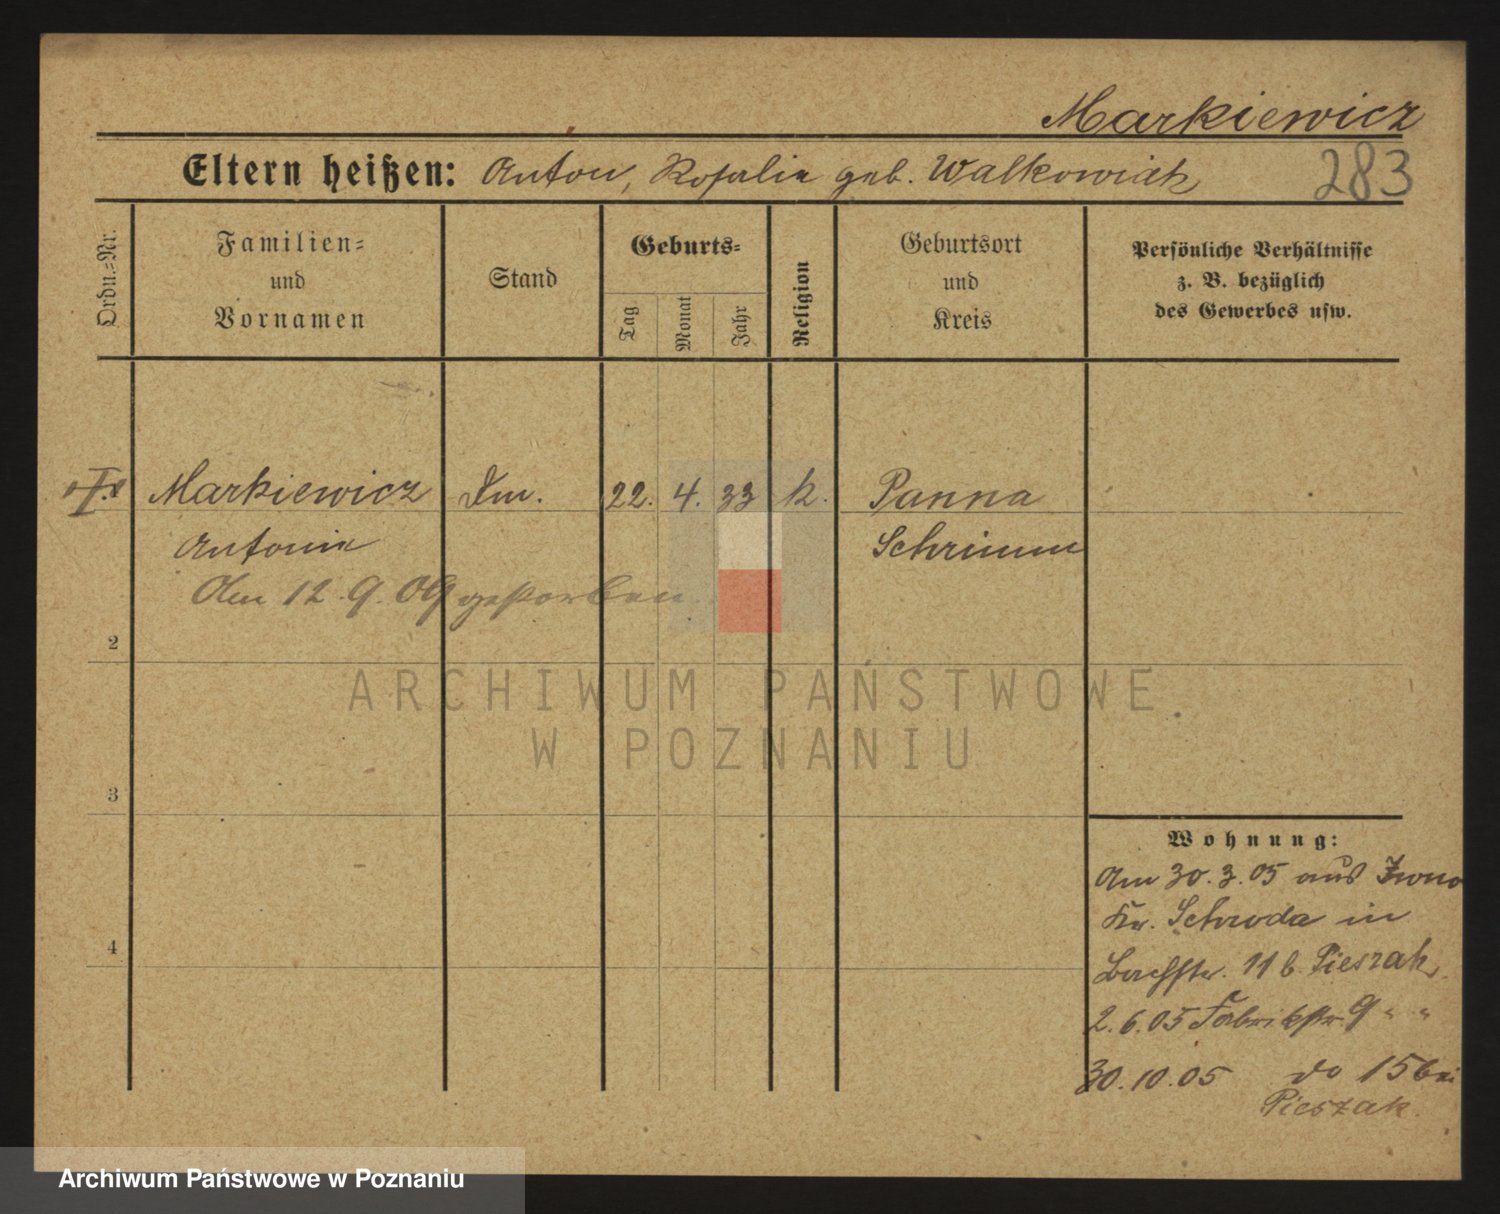 Markiewicz
Eltern heißen: Anton, Rosalie geb. Walkowiak
283
Ordn.=Nr.
Familien=
und
Vornamen
Stand
Geburts=
Tag
Monat
Jahr
Religion
Geburtsort
und
Kreis
Persönliche Verhältnisse
z. B. bezüglich
des Gewerbes usw.
Markiewicz
22. 4. 33 k. Panna
Antonie
Schrimm
Am 12.9.09 gestorben
2
ARCHIWUM PAŃSTWOWE
W POZNANIU
3
Wohnung:
Am 30.3.05 aus Iwno
Kr. Schroda in
Bachstr. 11 b. Pieszak
4
2.6.05 Fabrikstr. 9 " "
30.10.05 do 15 bei
Pieszak.
Archiwum Państwowe w Poznaniu